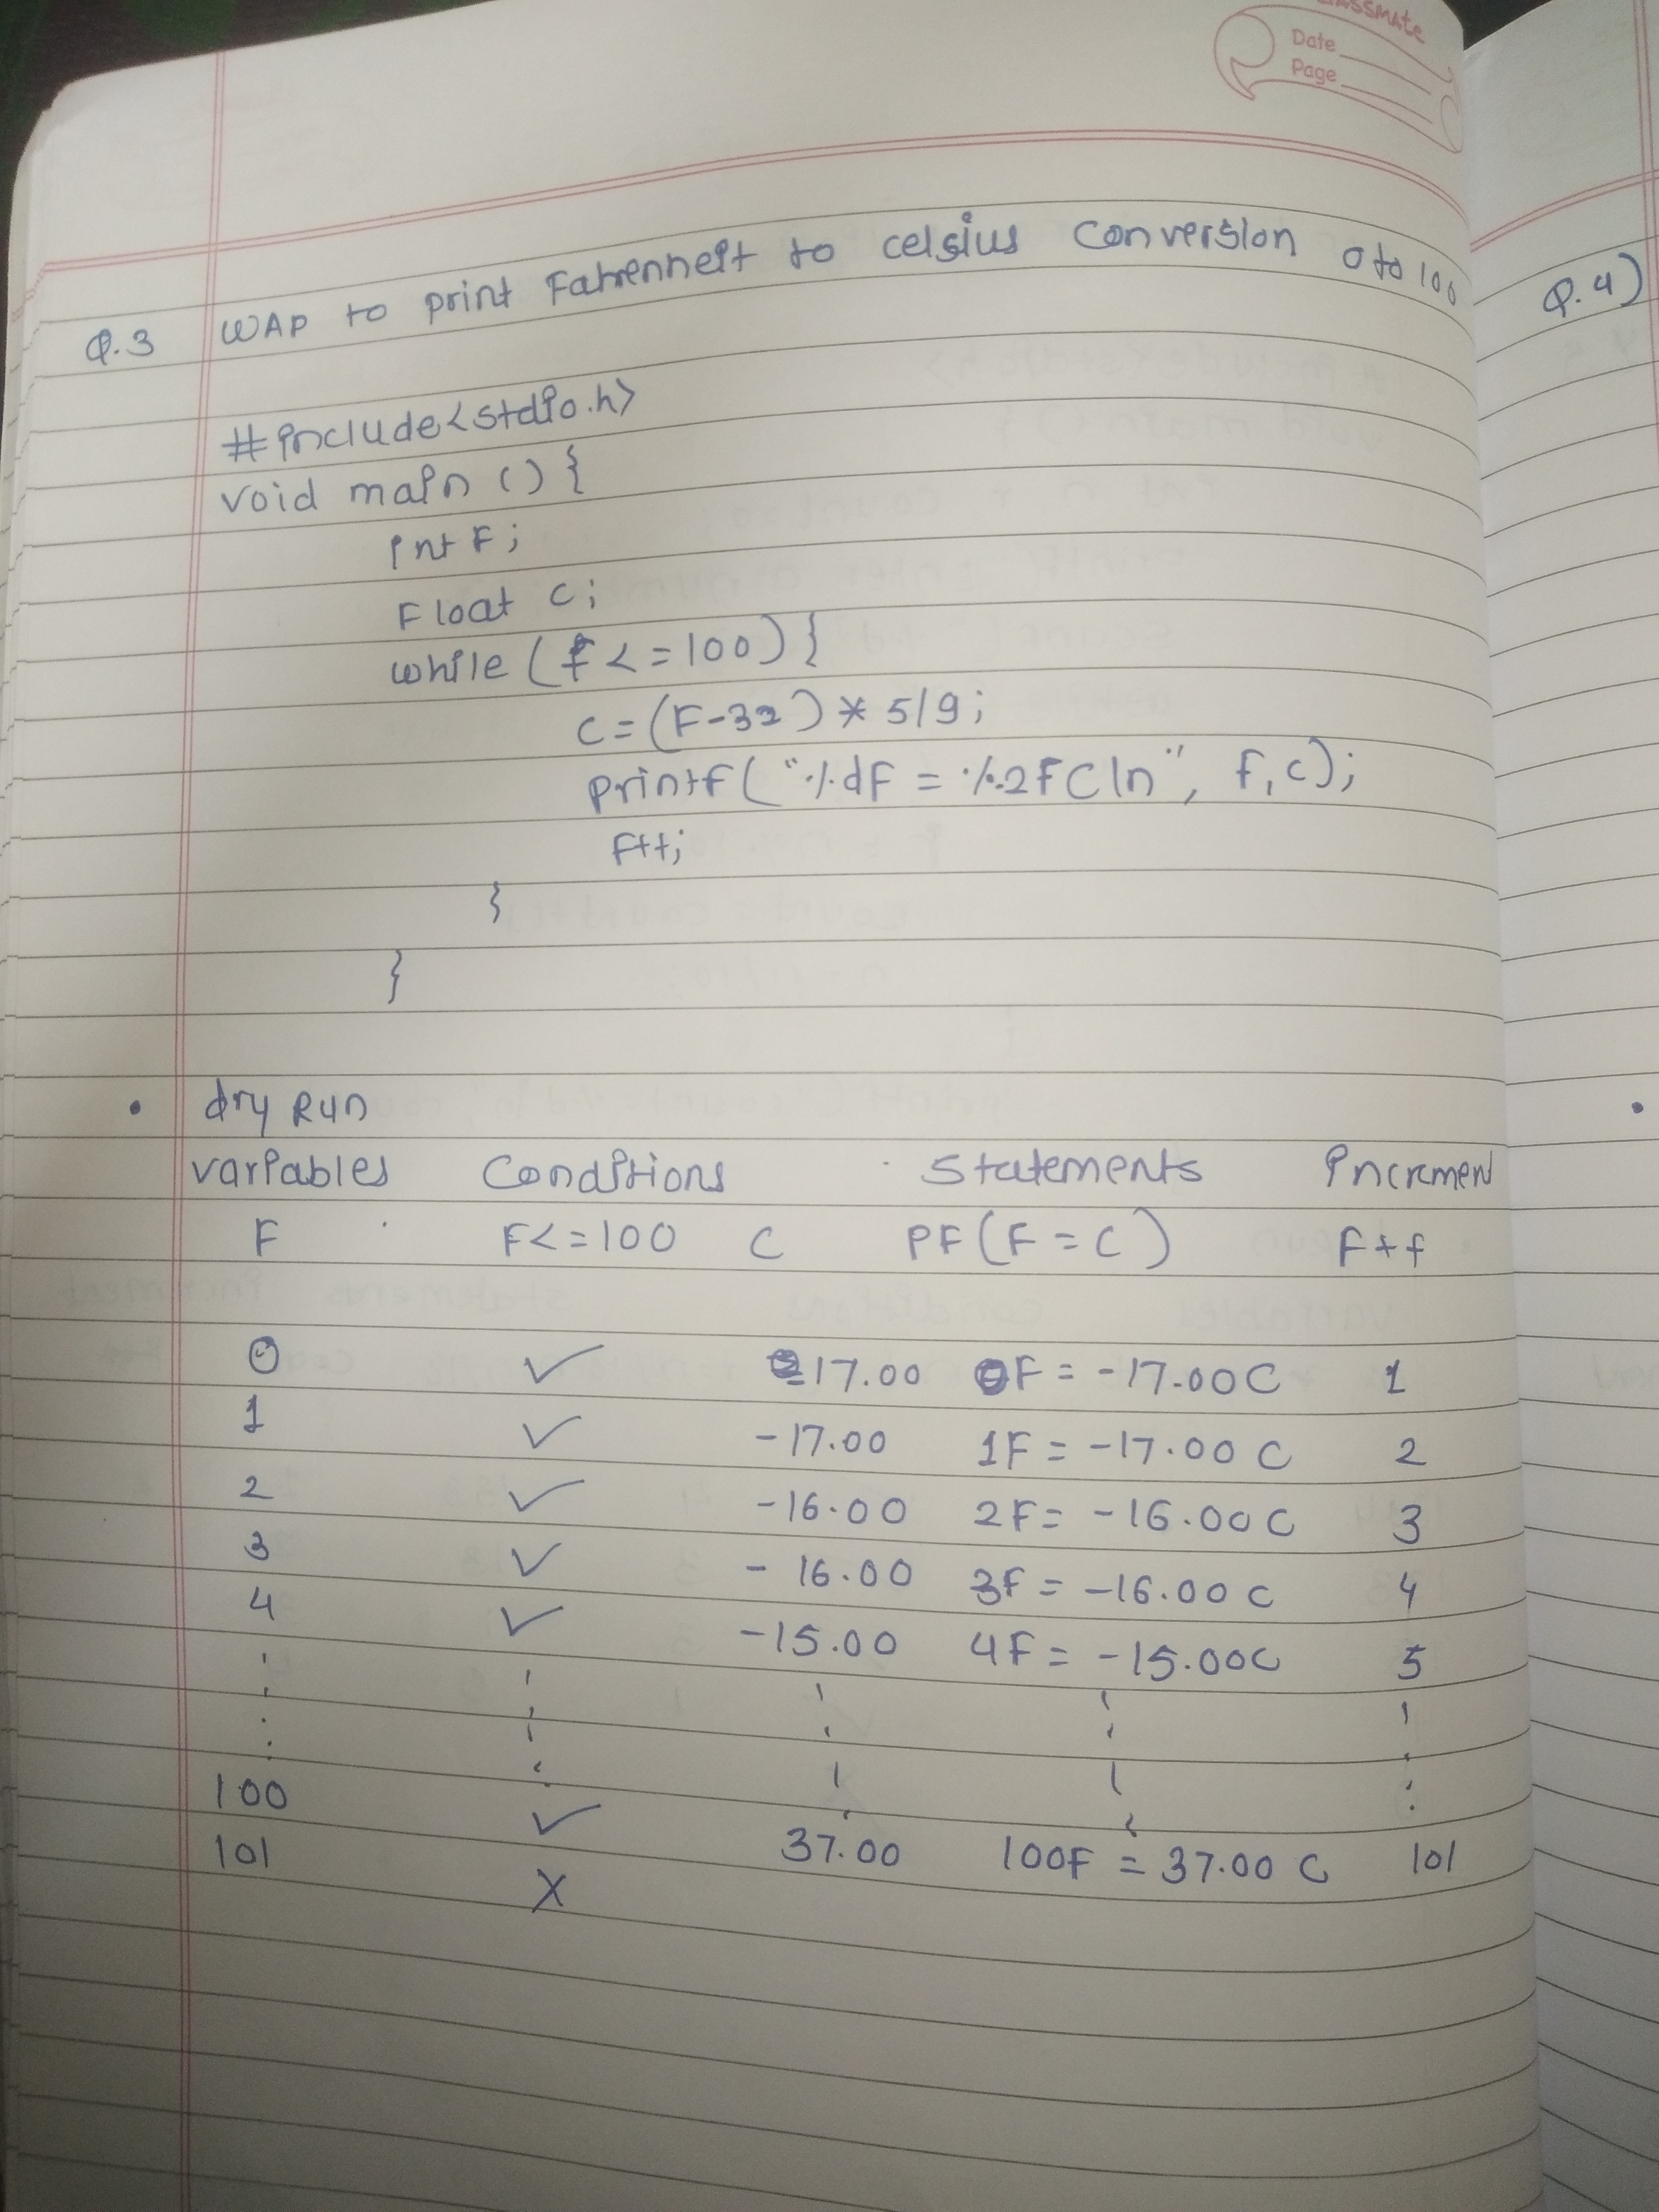 classmate
Date
Page
Q.3 WAP to print Fahrenheit to celsius conversion 0 to 100
Q.4)
#include<stdio.h>
void main () {
int F;
Float c;
while (f <= 100) {
c = (F-32) * 5/9;
printf("%dF = %.2FC\n", f,c);
F++;
}
}
• dry Run
variables Conditions Statements Incremen
F F<=100 C PF(F = C) F++
0 ✓ -17.00 0F = -17.00C 1
1 ✓ -17.00 1F = -17.00 C 2
2 ✓ -16.00 2F = -16.00 C 3
3 ✓ -16.00 3F = -16.00 C 4
4 ✓ -15.00 4F = -15.00C 5
100 ✓ 37.00 100F = 37.00 C 101
101 X